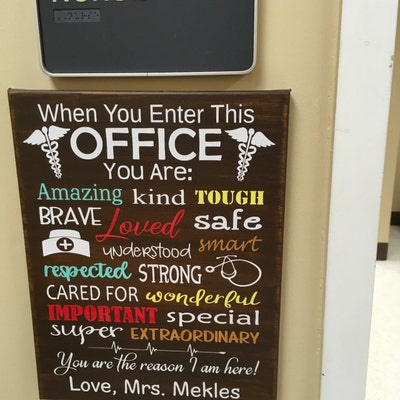 When You Enter This
OFFICE
You Are:
Amazing kind TOUGH
BRAVE Loved safe
understood smart
respected STRONG
CARED FOR wonderful
IMPORTANT special
super EXTRAORDINARY
You are the reason I am here!
Love, Mrs. Mekles